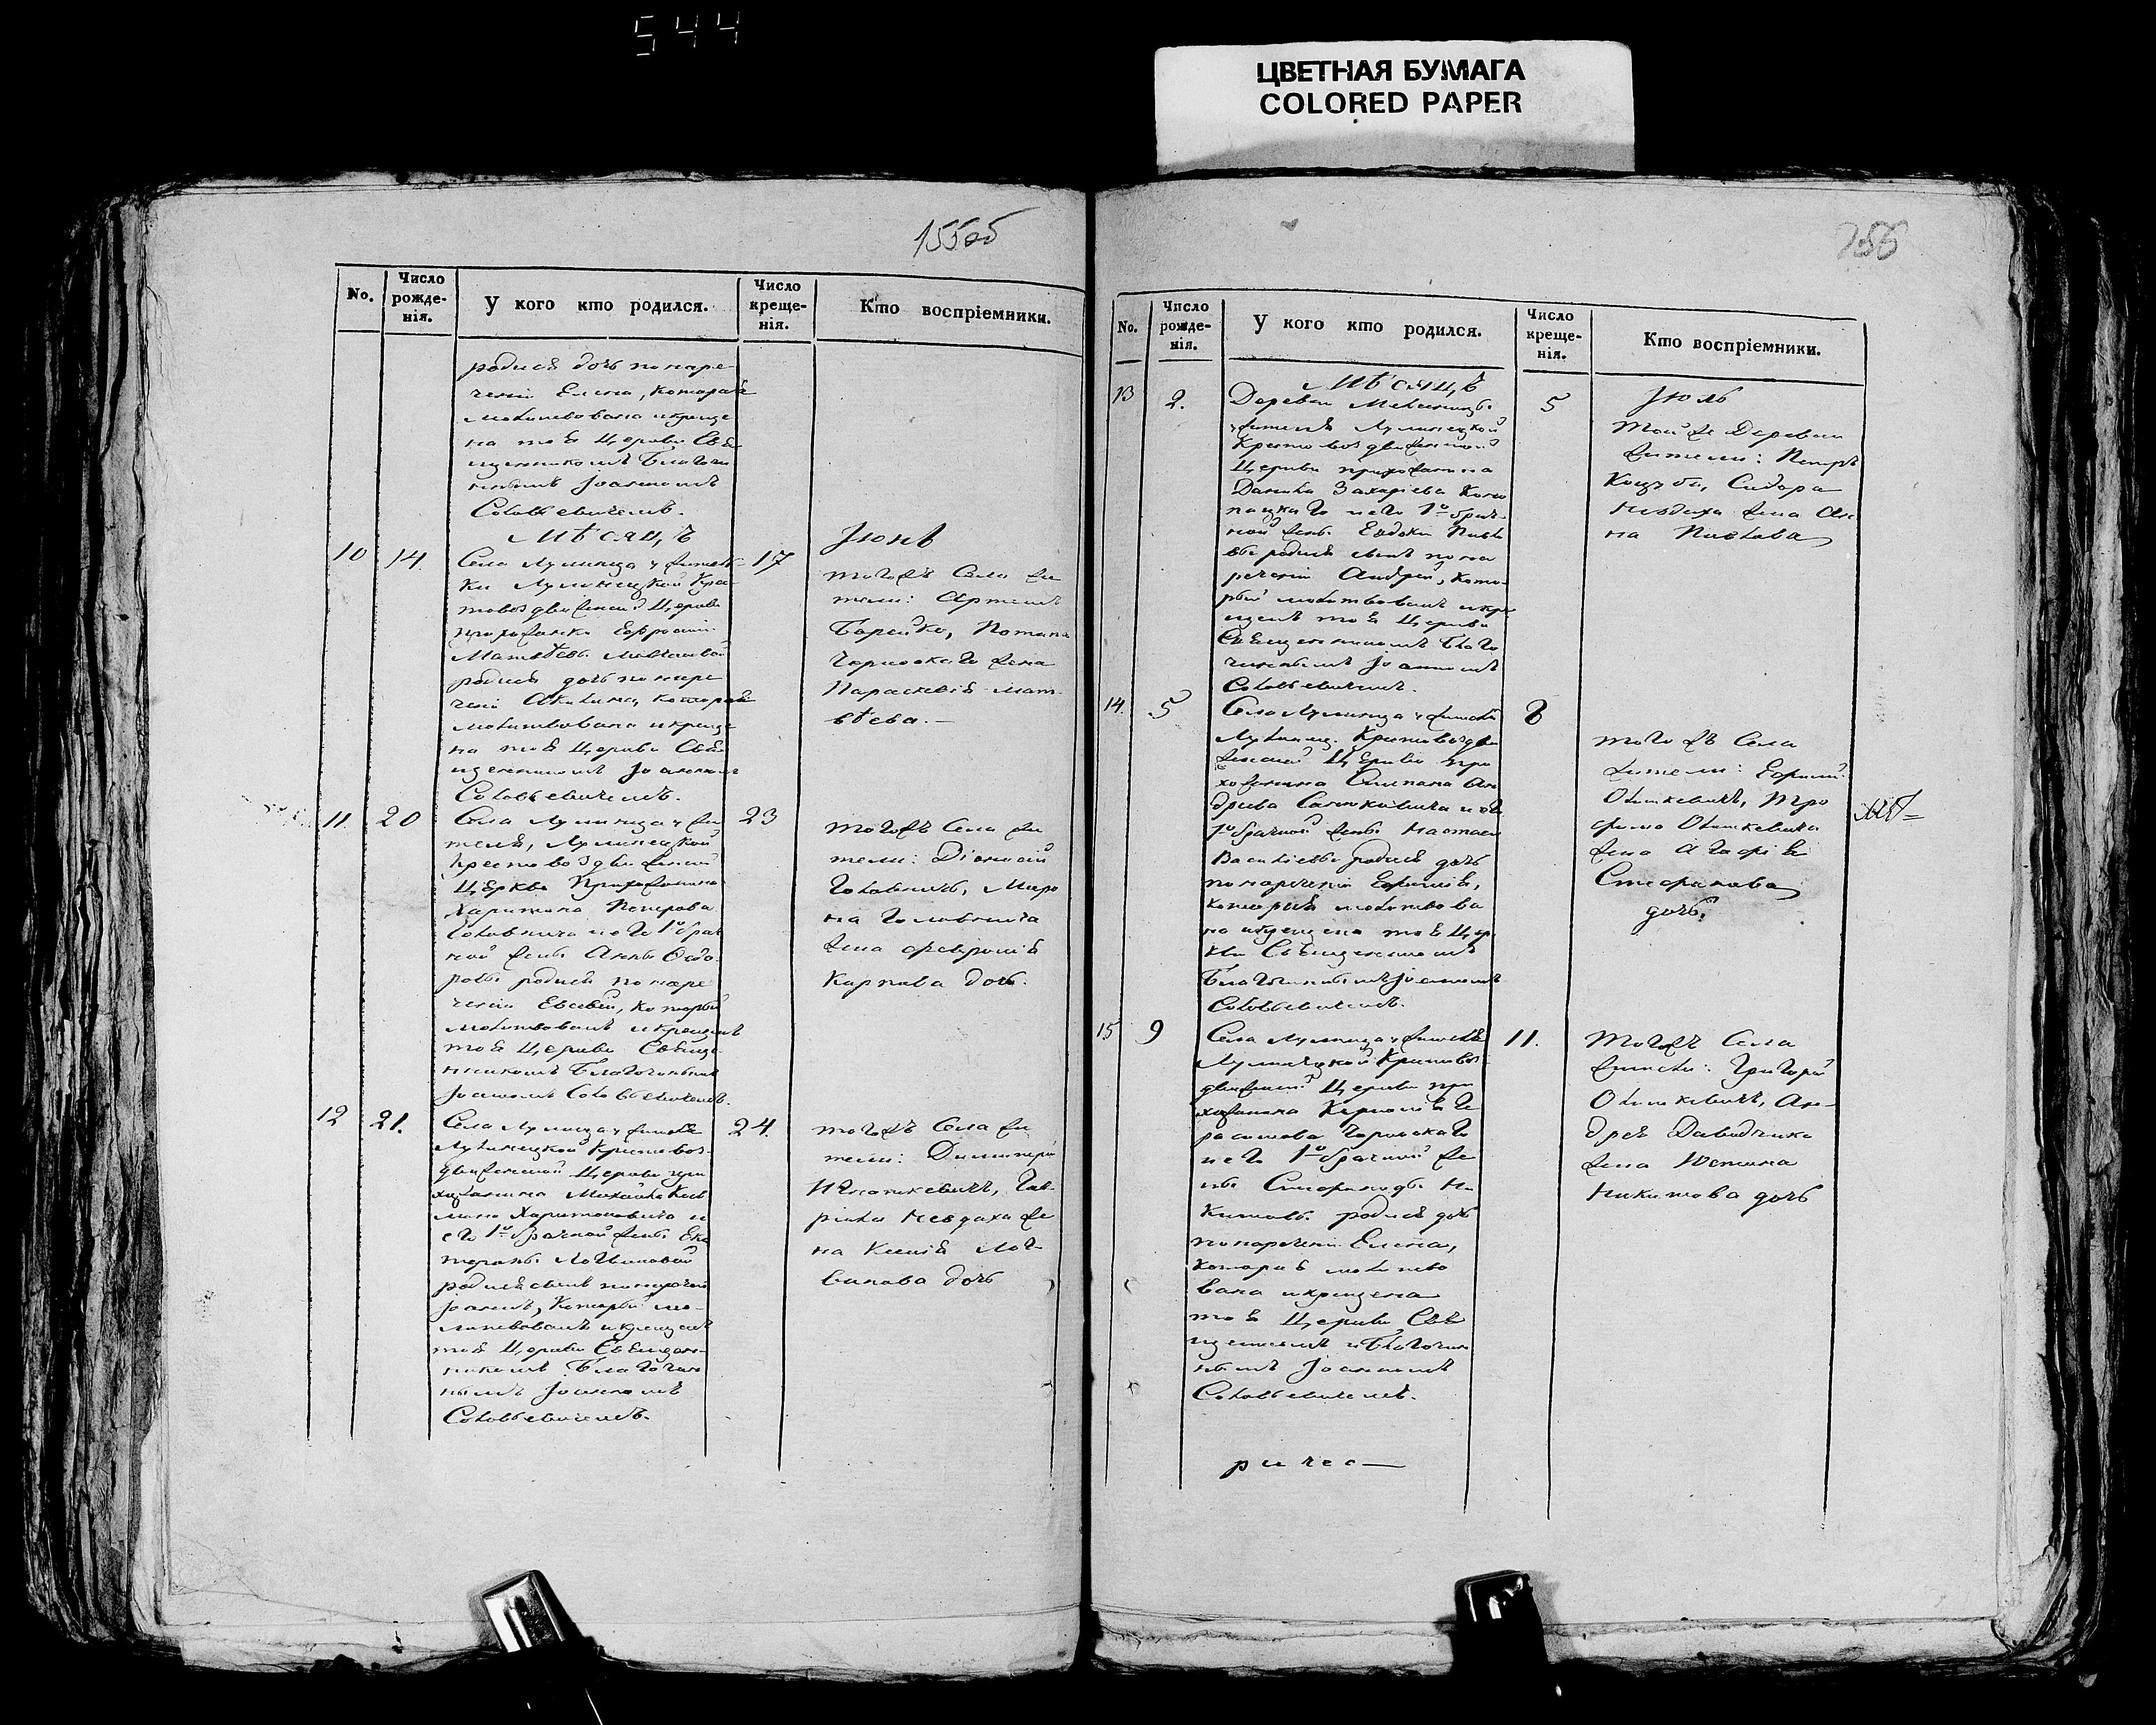 544
ЦВЕТНАЯ БУМАГА
COLORED PAPER
155об
No.
Число рожде-нія.
У кого кто родился.
Число креще-нія.
Кто воспріемники.
родися дочь понаре-
ченіи Елена, которая
молитвована и креще
на тоя Церкви Свя
щенникомъ Благочин
ннымъ Іоанномъ
Соловьевичемъ.
Мѣсяцъ
Іюнь
10
14.
17
Села Лунинца
ки Лунинецкой Кре
товоздвиженской Церкви
прихожанки Ефросиніи
Матвѣевы
родися дочь понаре
ченіи Акилина, которая
молитвована и креще
на тоя Церкви Свя
щенникомъ Іоанномъ
Соловьевичемъ.
тогожъ Села жи
тели: Артемъ
Борейко, Потапа
Чернокаго жена
Параскевія Мат
вѣева.
11.
20
23
Села Лунинца жи
теля, Лунинецкой
Крестовоздвиженской
Церкви Прихожанина
Харитона Петрова
Головнича и его 1о брач
ной жены Анны Федо
ровы родися понаре
ченіи Евсевій, который
молитвованъ и крещенъ
тоя Церкви Священ
нникомъ Благочиннымъ
Іоанномъ Соловьевичемъ.
тогожъ Села жи
тели: Діонисій
Головничъ, Миро
на Головнича
жена Февронія
Карпова дочь.
12
21.
24.
Села Лунинца жителя
Лунинецкой Крестовоз-
движенской Церкви при
хожанина Михаила
Харитоновича и
его 1о брачной жены Ека
терины Логвиновой
родися сынъ понаречени
Іоаннъ, Который мо-
литвованъ и крещенъ
тоя Церкви Священ-
никомъ Благочин
нымъ Іоанномъ
Соловьевичемъ.
тогожъ Села жи
тели: Димитрій
Игнаткевичъ, Гав-
ріила Невдаха же
на Ксенія Лог-
винова дочь
156
No.
Число рожде-нія.
У кого кто родился.
Число креще-нія.
Кто воспріемники.
Мѣсяцъ
Іюль
13
2.
5
Деревни
жителя Лунинецкой
Крестовоздвиженской
Церкви прихожанина
Данила Захаріева
и его 1о брач-
ной жены Евдокіи Павло
вы родися сынъ пона
реченіи Андрей, Кото-
рый молитвованъ и кре
щенъ тоя Церкви
Священникомъ Благо
чиннымъ Іоанномъ
Соловьевичемъ.
Той же Деревни
жители: Петръ
Коцуба, Сидора
жена Ан
на Павлова
14.
5
8
Села Лунинца жителя
Лунинец. Крестовоздви
женской Церкви при
хожанина Степана Ан
дреева и его
1о брачной жены Настасіи
Василіевы родися дочь
понареченіи Евфимія,
которая молитвова
на и крещена тоя Цер
кви Священникомъ
Благочиннымъ Іоанномъ
Соловьевичемъ.
того жъ Села
жители: Ефимій
Олишкевичъ, Тро
фима Олишкевича
жена Агафія
Стефанова
дочь.
15
9
11.
Села Лунинца жителя
Лунинецкой Крестовоз-
движенской Церкви при
хожанина Корнилія Ге
расимова Чернокаго
и его 1о брачной же
ны Стефаниды Ни
китовы родися дочь
понаречени Елена,
которая молитво
вана и крещена
тоя Церкви Свя
щенникомъ и Благочин
нымъ Іоанномъ
Соловьевичемъ.
тогожъ Села
жители: Григорій
Олишкевичъ, Ан-
дрея Давидчика
жена Юстина
Никитова дочь